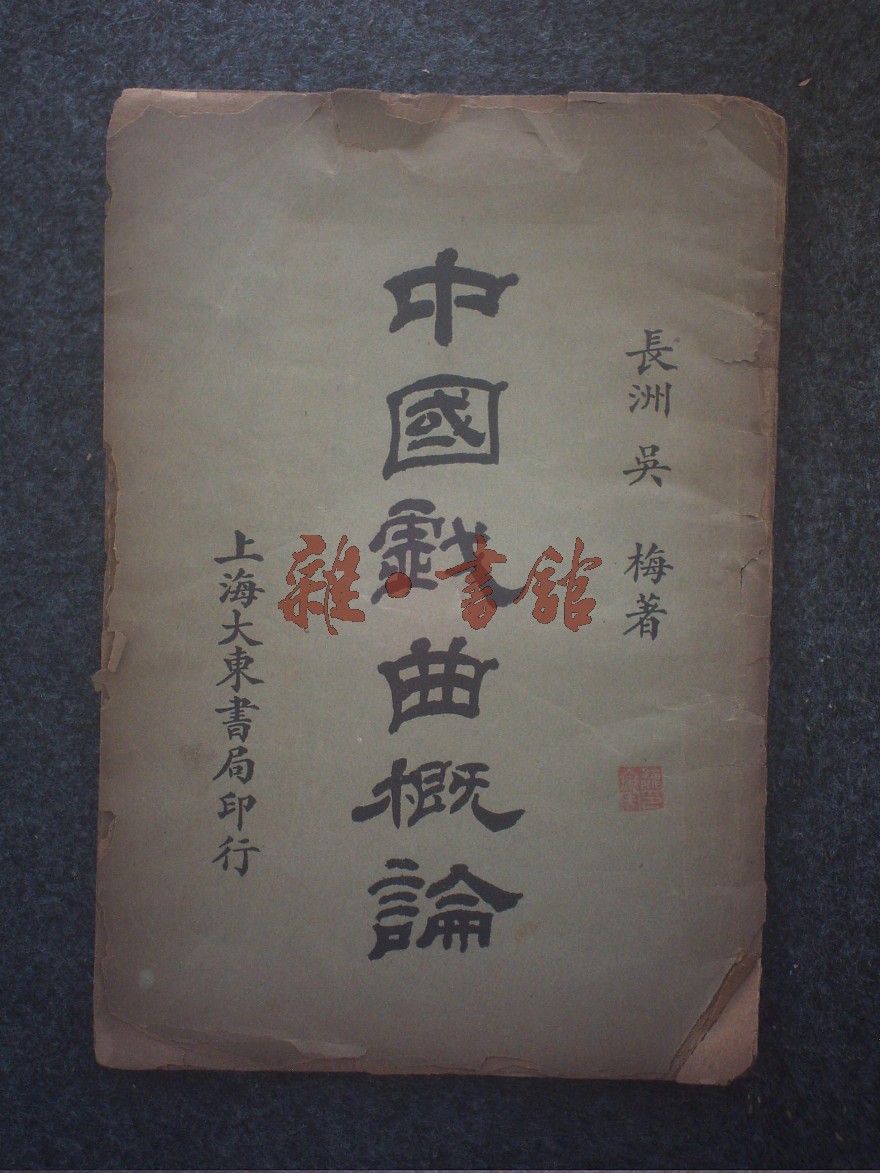 長洲 吳 梅著
中國戲曲概論
上海大東書局印行
雜·書館